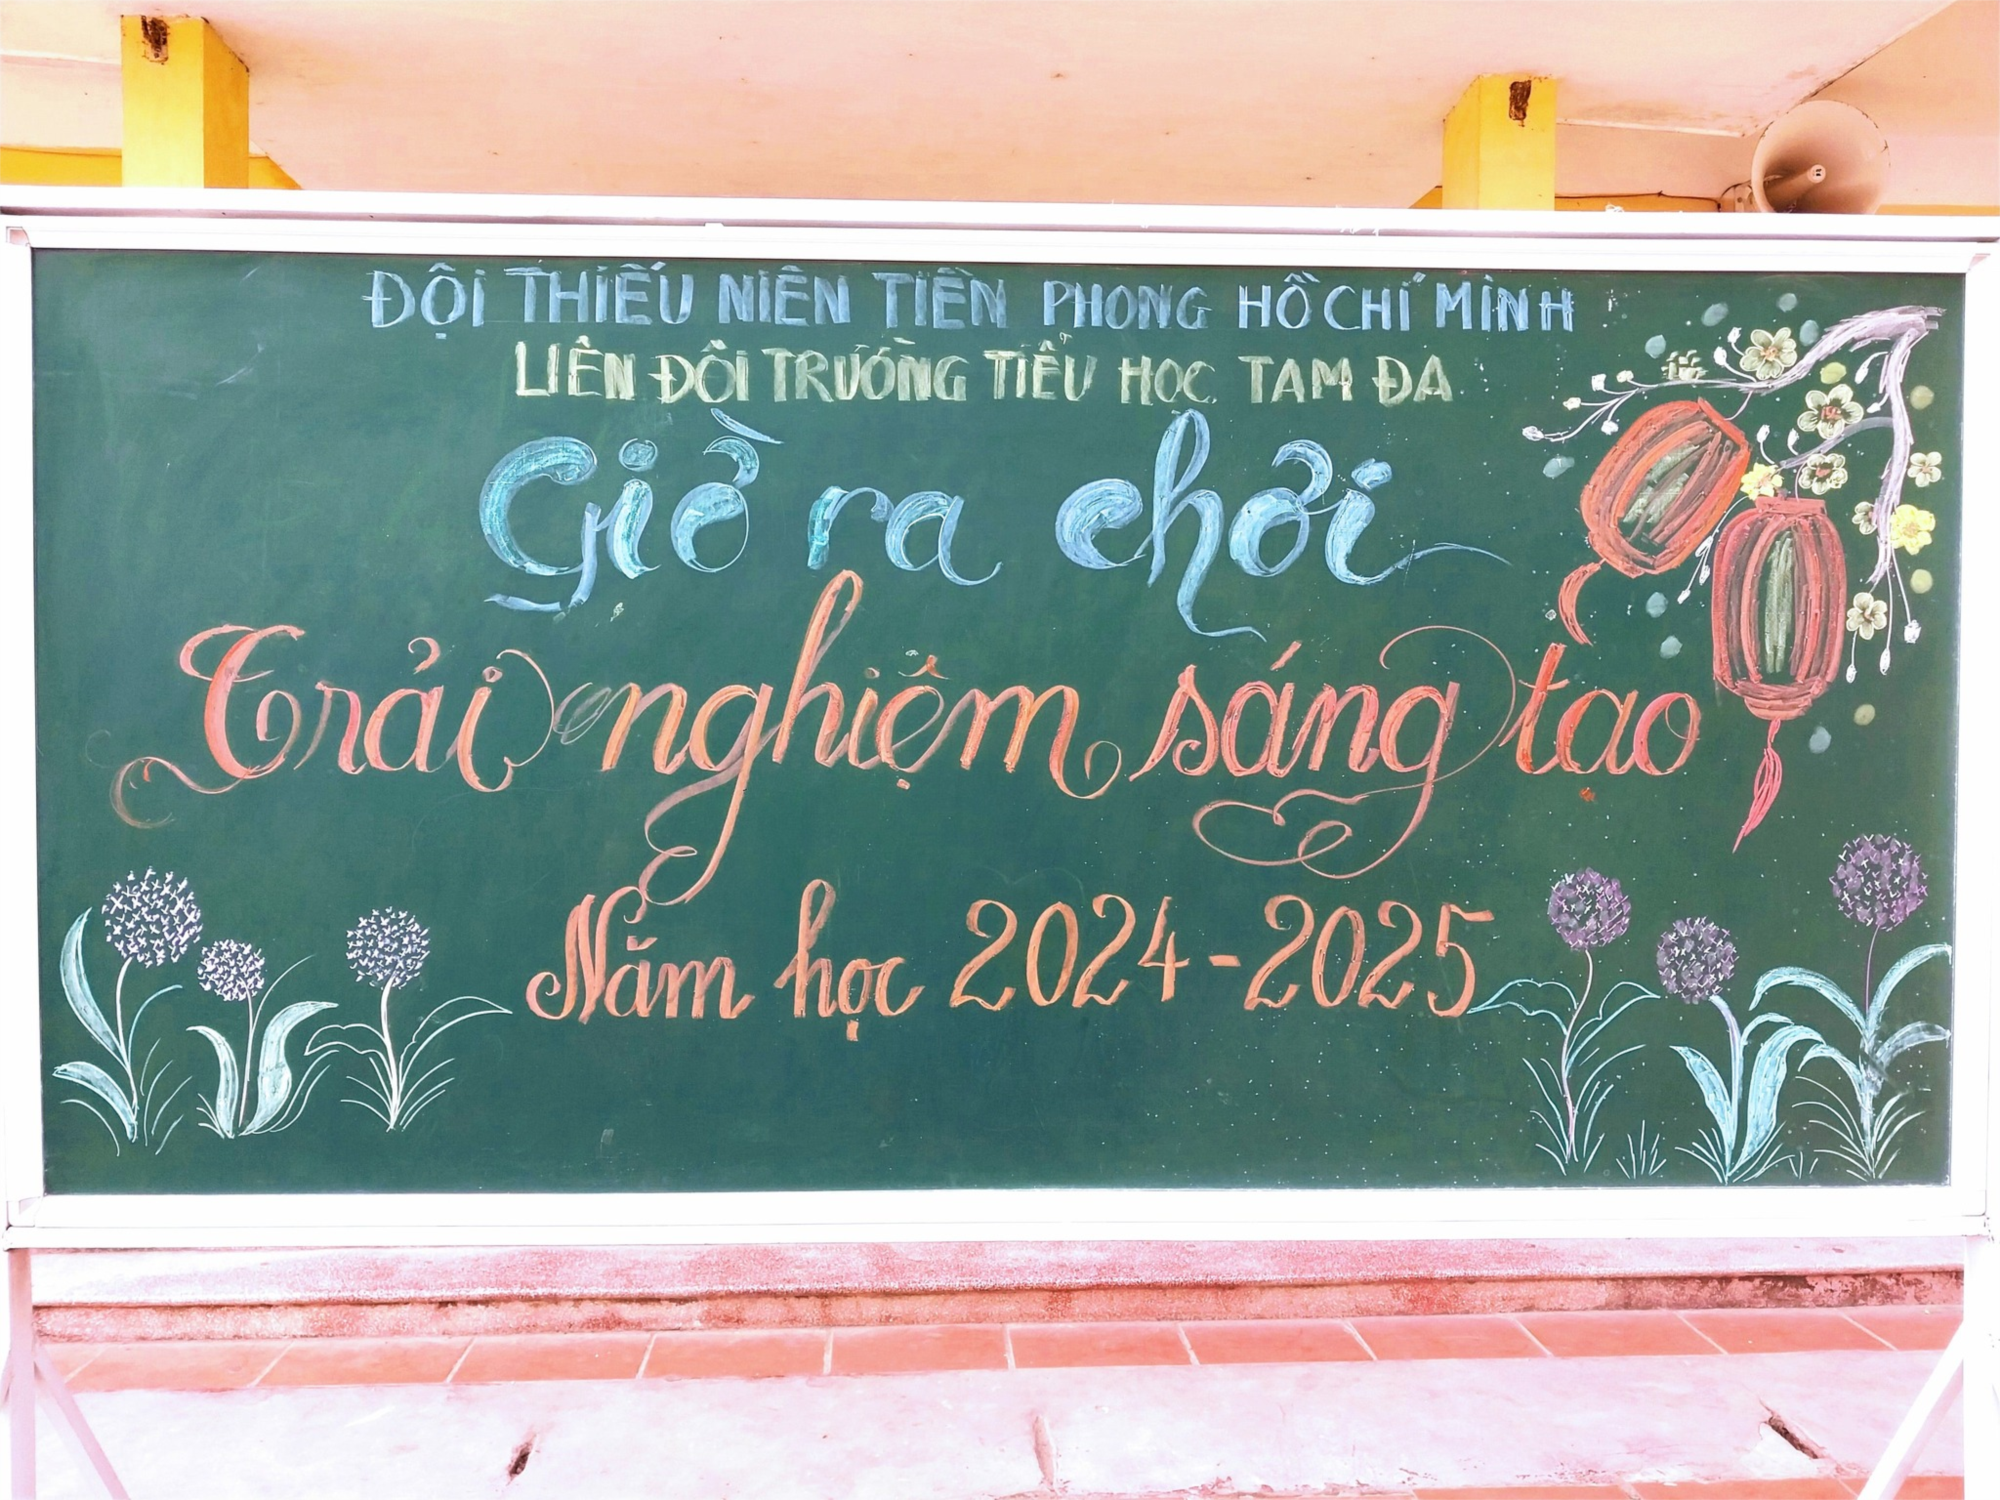 ĐỘI THIẾU NIÊN TIỀN PHONG HỒ CHÍ MINH
LIÊN ĐỘI TRƯỜNG TIỂU HỌC TAM ĐA
Giờ ra chơi
Trải nghiệm sáng tạo
Năm học 2024-2025